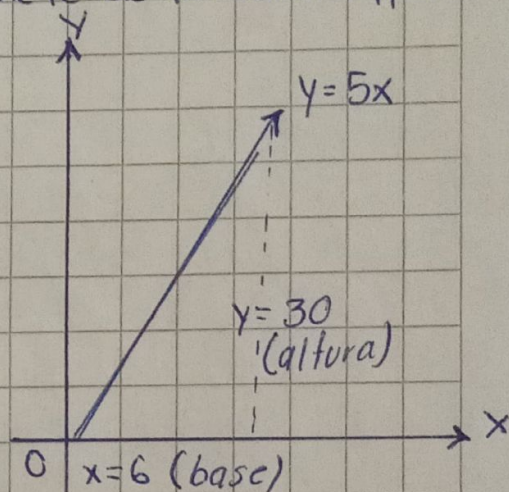 Y
y=5x
y=30
(altura)
X
0
x=6 (base)